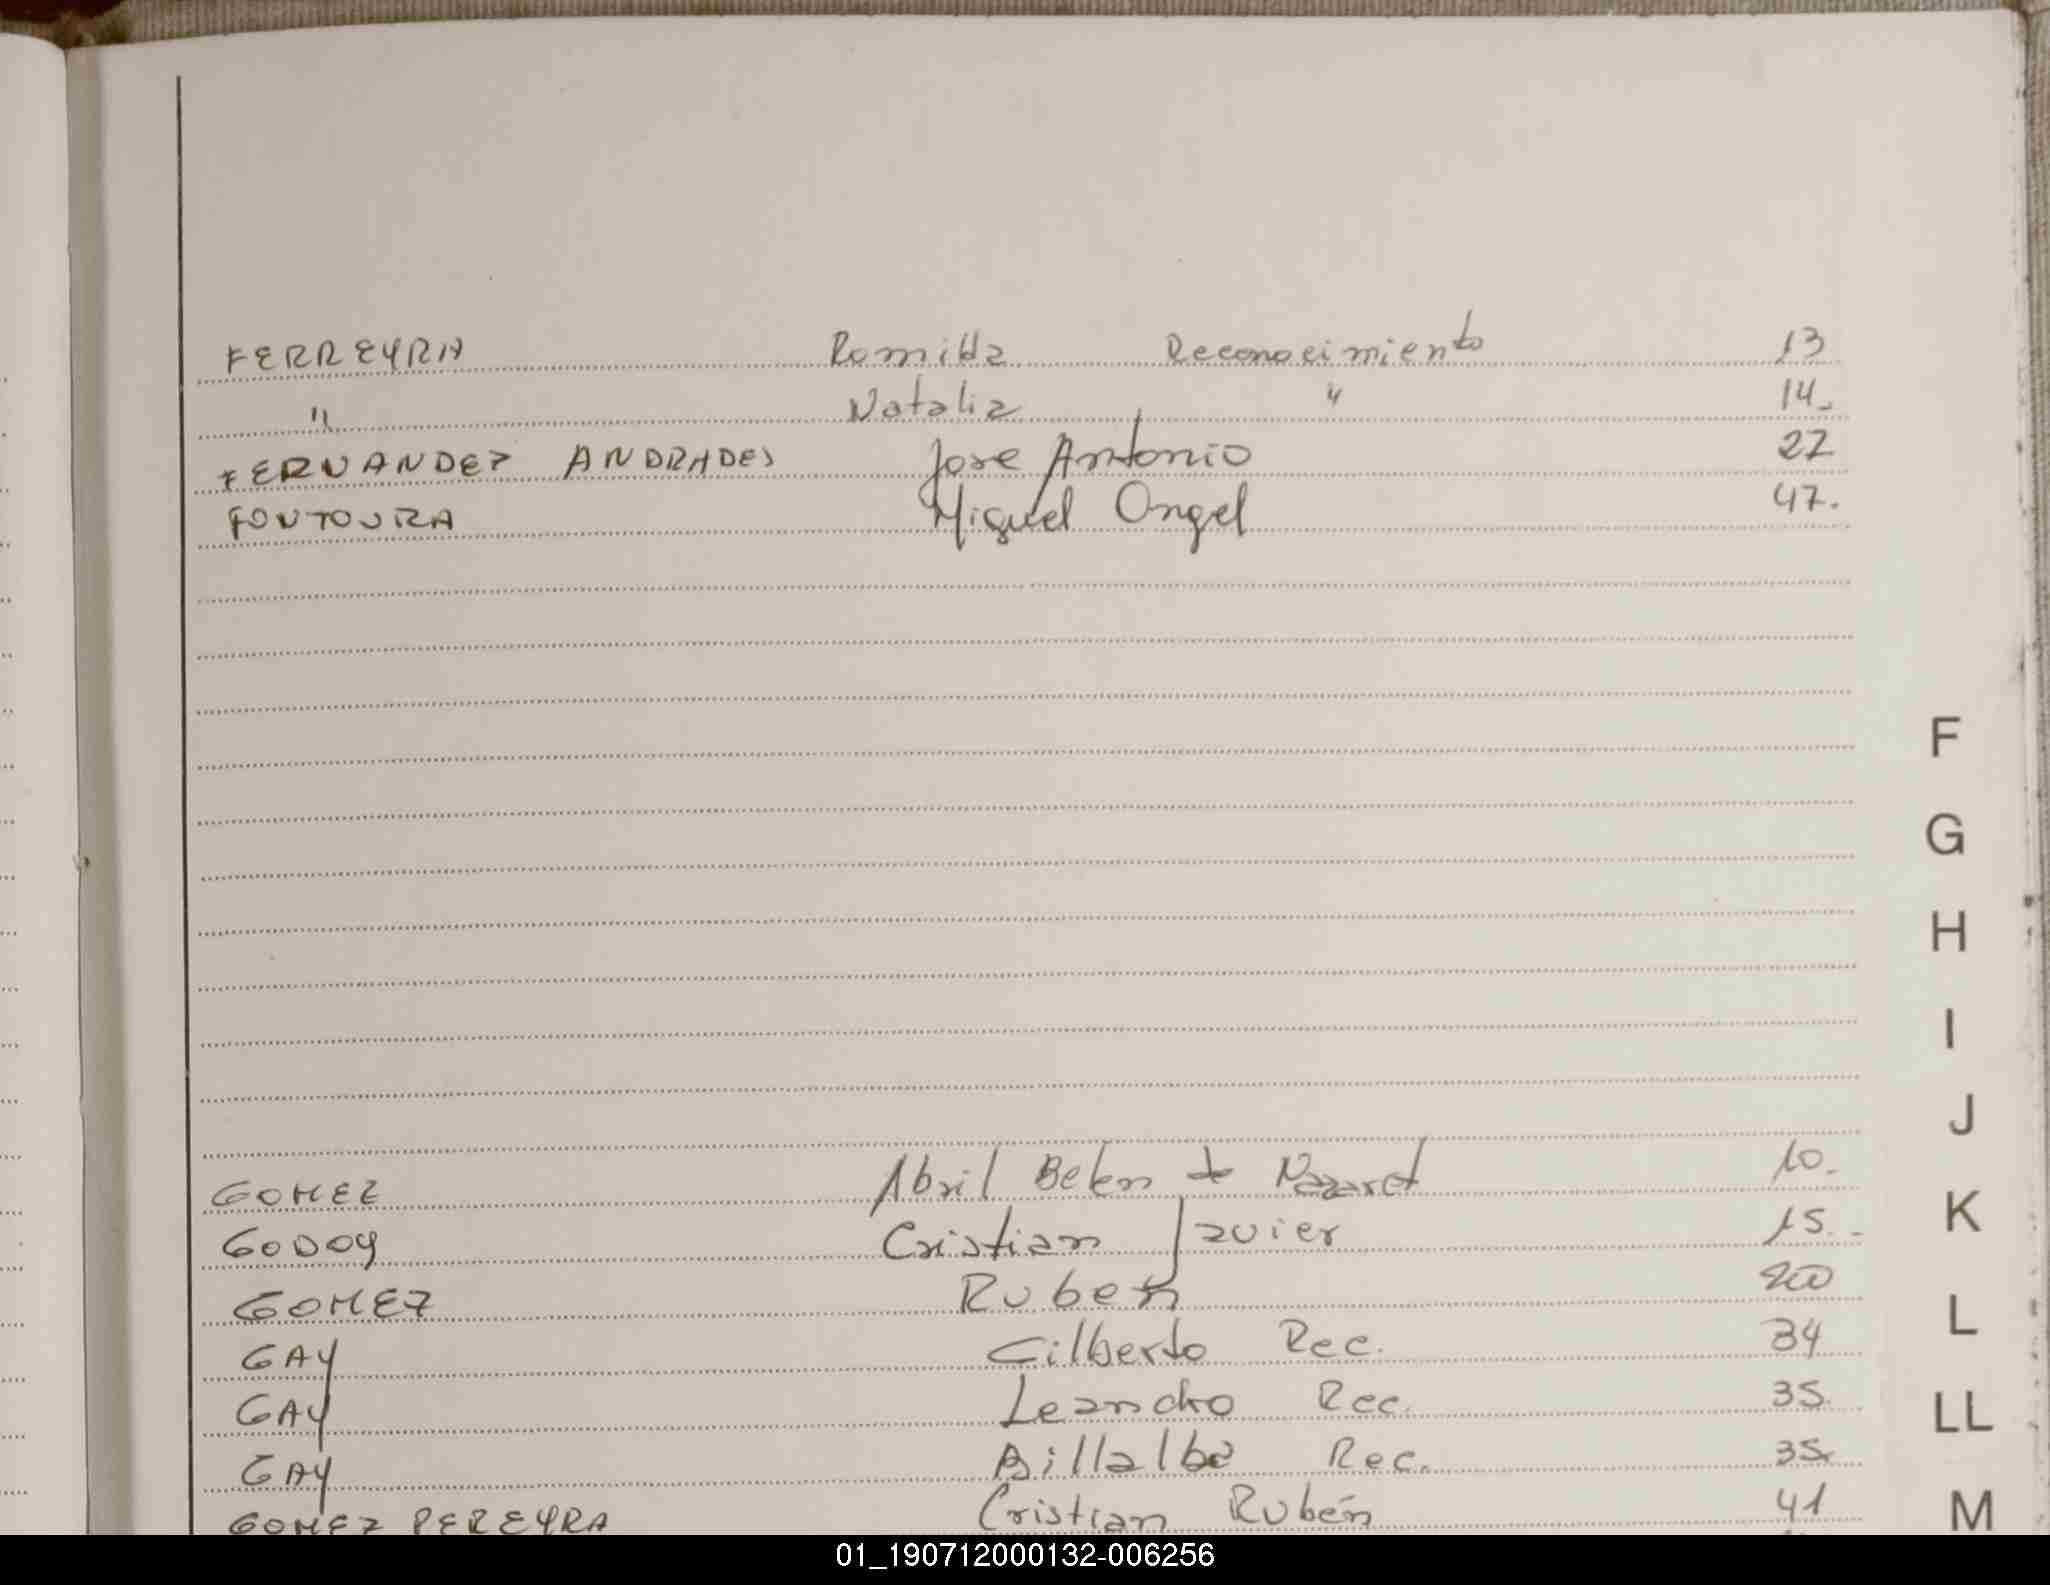 FERREYRA Romilda Reconocimiento 13
" Natalia " 14.
FERNANDEZ ANDRADES Jose Antonio 27
FONTOURA Miguel Angel 47.
F
G
H
I
J
GOMEZ Abril Belen de Nazaret 10.
K
GODOY Cristian Javier 15.
GOMEZ Ruben 20
L
GAY Gilberto Rec. 34
GAY Leandro Rec. 35
LL
GAY Rec. 35
GOMEZ PEREYRA Cristian Rubén 41
M
01_190712000132-006256